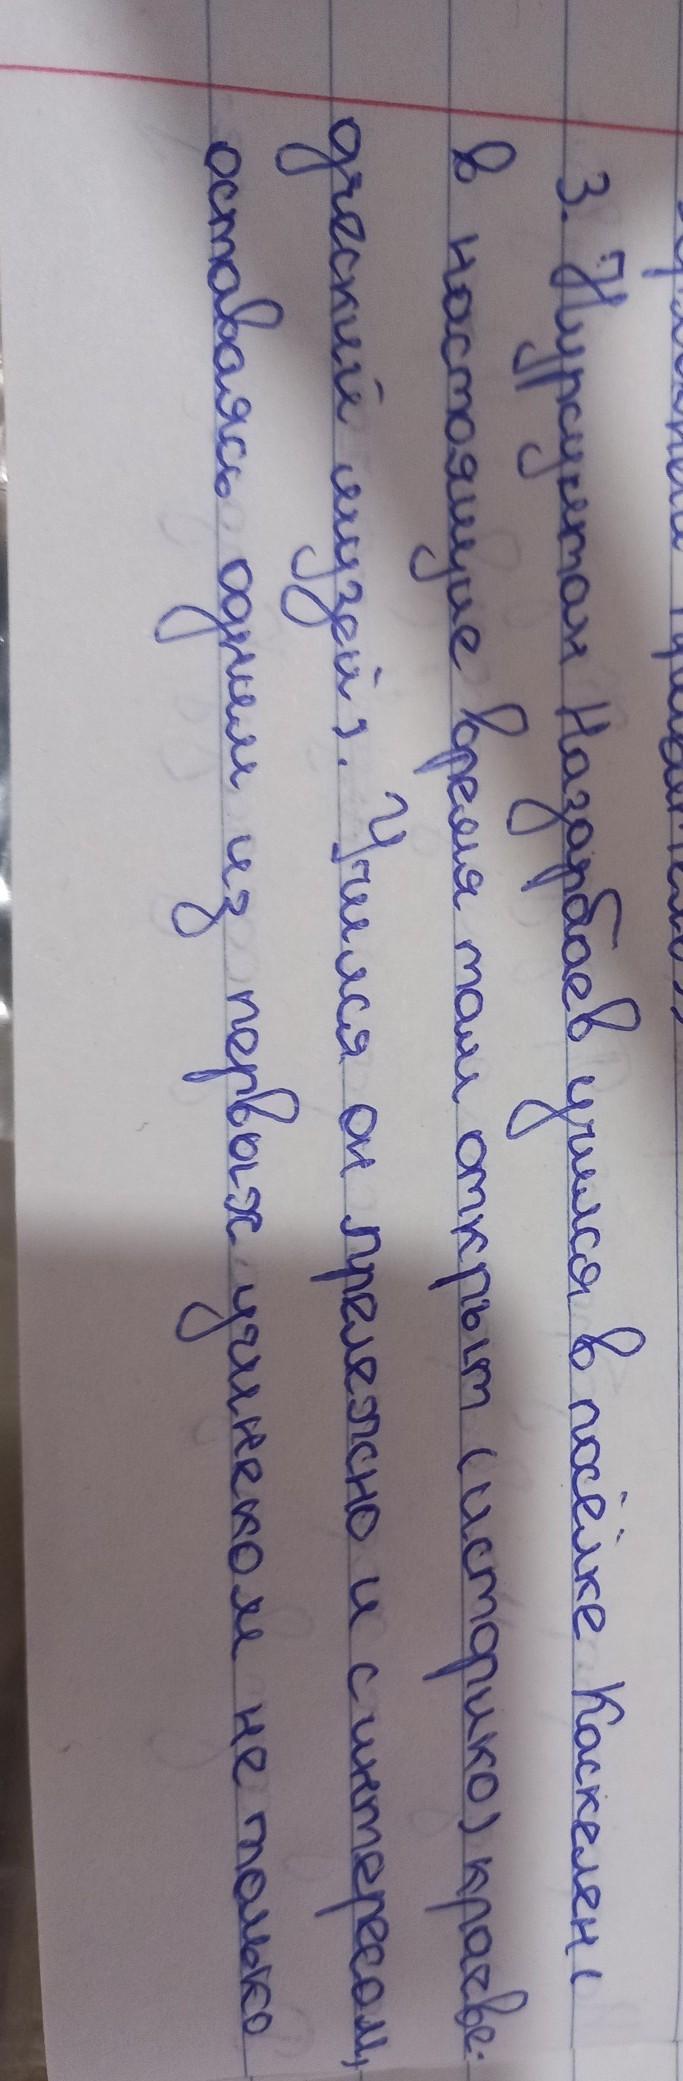 3. Нурсултан Назарбаев учился в посёлке Каскелен (
в настоящие время там открыт (историко) краеве-
дческий музей). Учился он прележно и с интересом,
оставаясь одним из первых учинеком не только